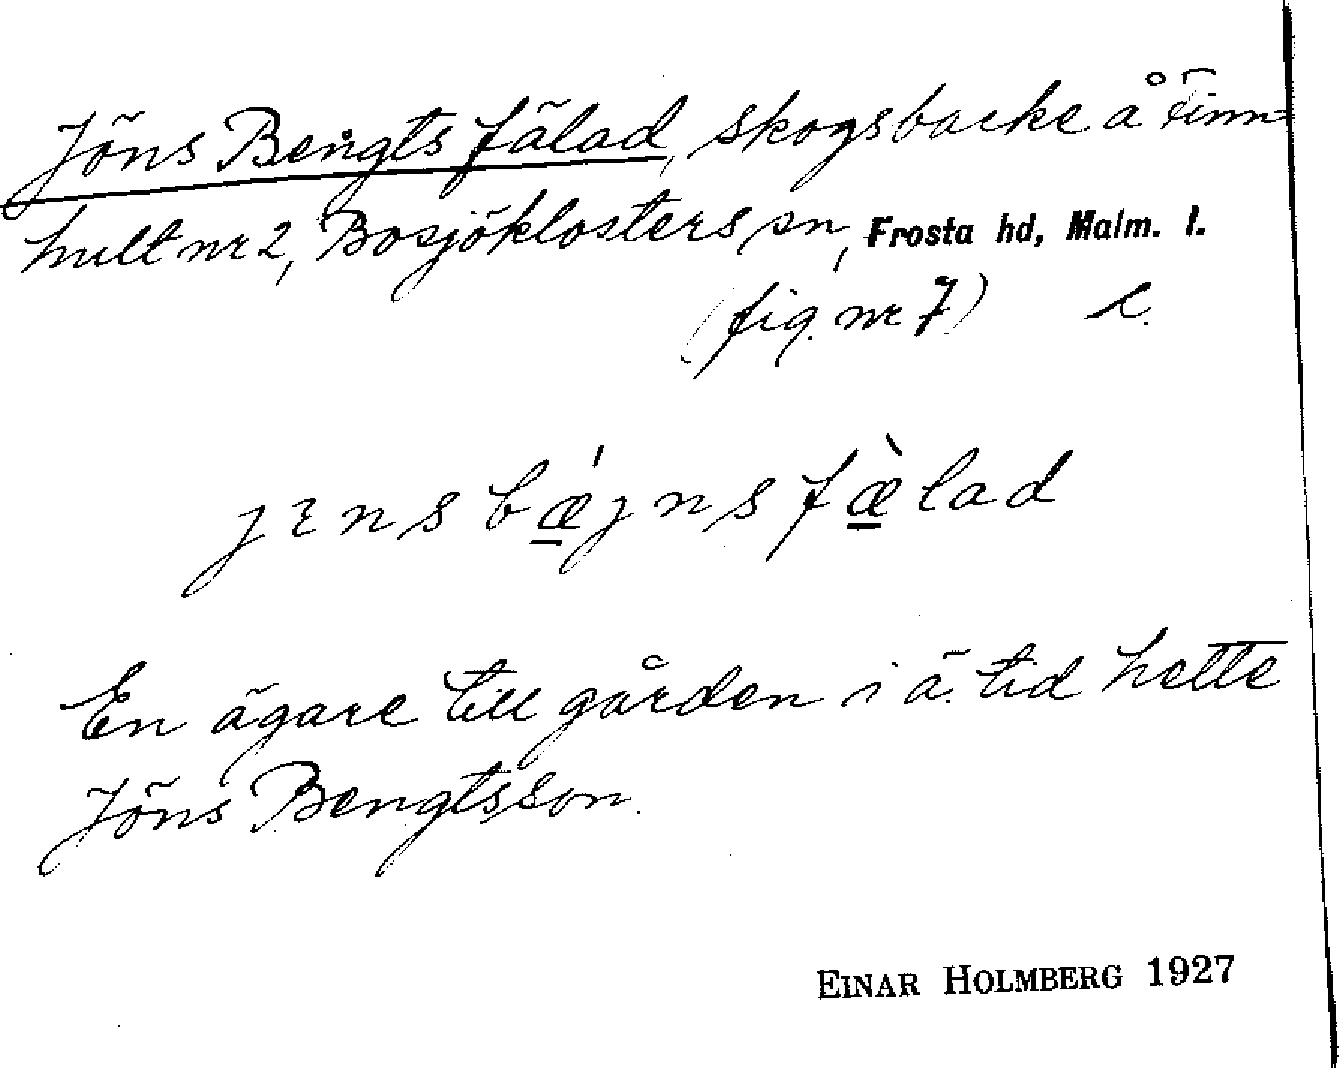 Jöns Bengts fälad, skogsbacke å Finn=
hult nr 2, Bosjöklosters sn, Frosta hd, Malm. l.
(fig. nr 7) l.
jɛns bǽjns fæ̀lad
En ägare till gården i ä. tid hette
Jöns Bengtsson.
EINAR HOLMBERG 1927